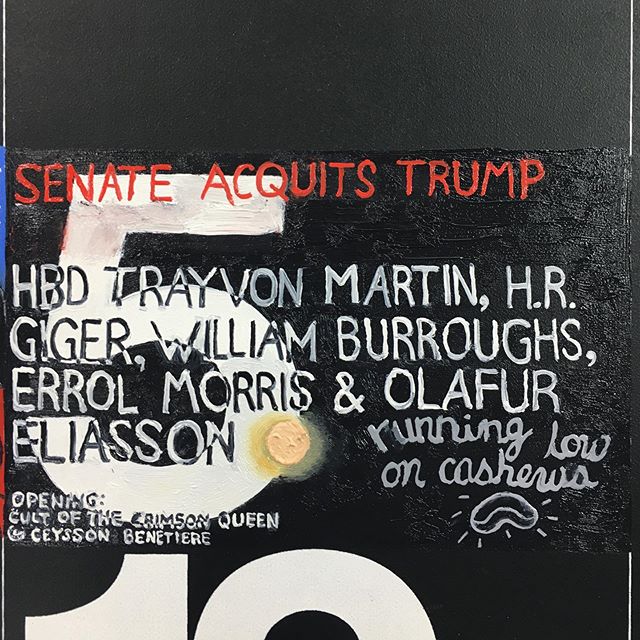 SENATE ACQUITS TRUMP
5
HBD TRAYVON MARTIN, H.R.
GIGER, WILLIAM BURROUGHS,
ERROL MORRIS & OLAFUR
ELIASSON
running low
on cashews
OPENING:
CULT OF THE CRIMSON QUEEN
@ CEYSSON BENETIERE
12